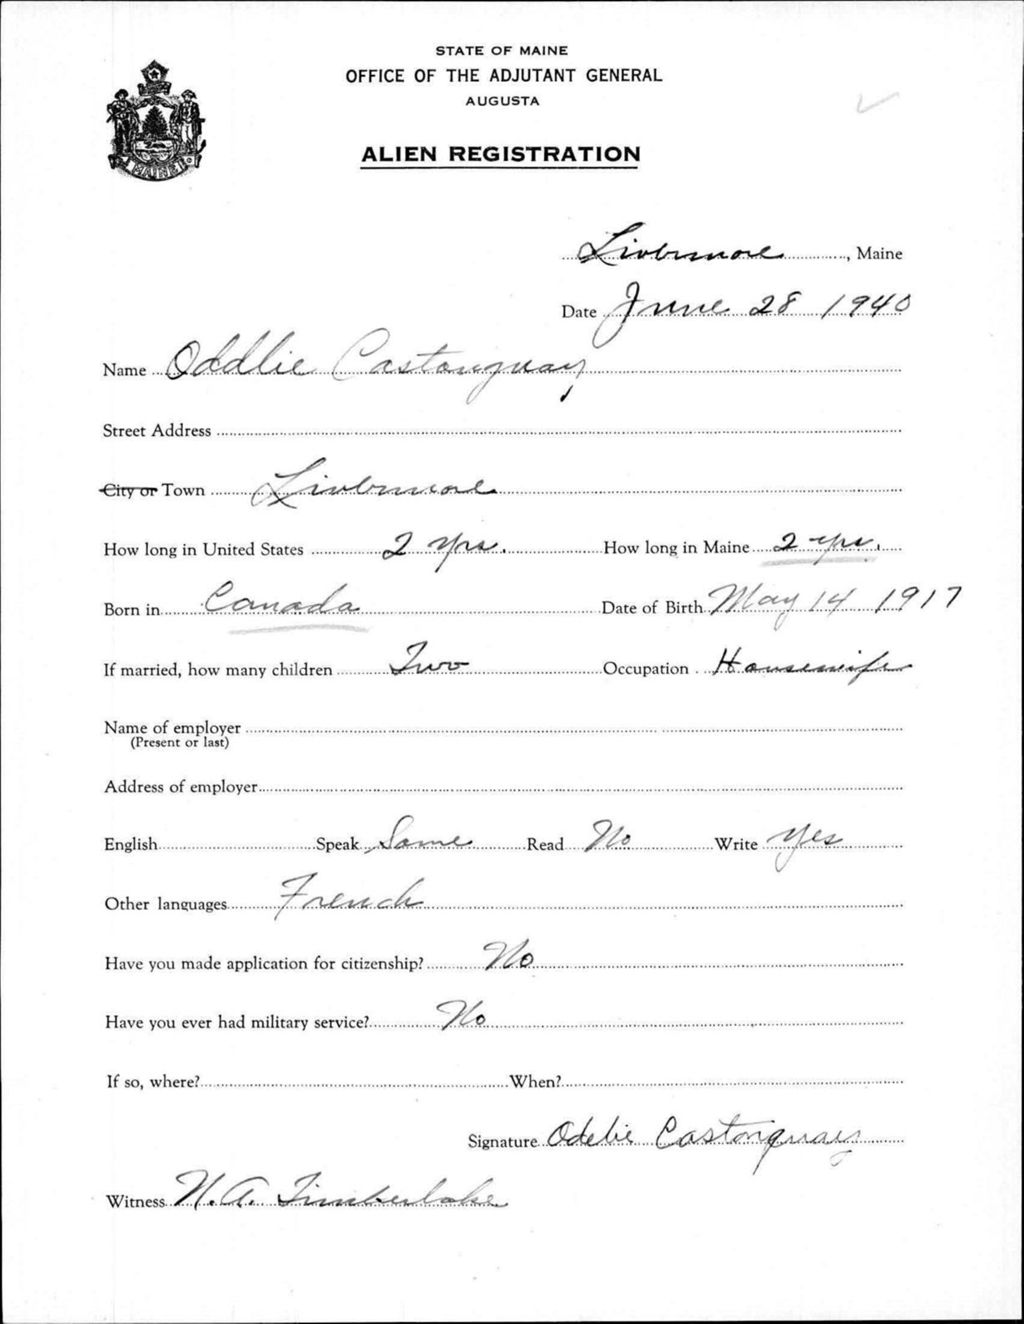 STATE OF MAINE
OFFICE OF THE ADJUTANT GENERAL
AUGUSTA
ALIEN REGISTRATION
MAINE
Livermore, Maine
Date June 28 1940
Name Oddlie Castonguay
Street Address
City or Town Livermore
How long in United States 2 yrs. How long in Maine 2 yrs.
Born in Canada Date of Birth May 14 1917
If married, how many children Two Occupation Housewife
Name of employer
(Present or last)
Address of employer
English Speak Some Read No Write Yes
Other languages French
Have you made application for citizenship? No
Have you ever had military service? No
If so, where? When?
Signature Odelie Castonguay
Witness N. A. Timberlake